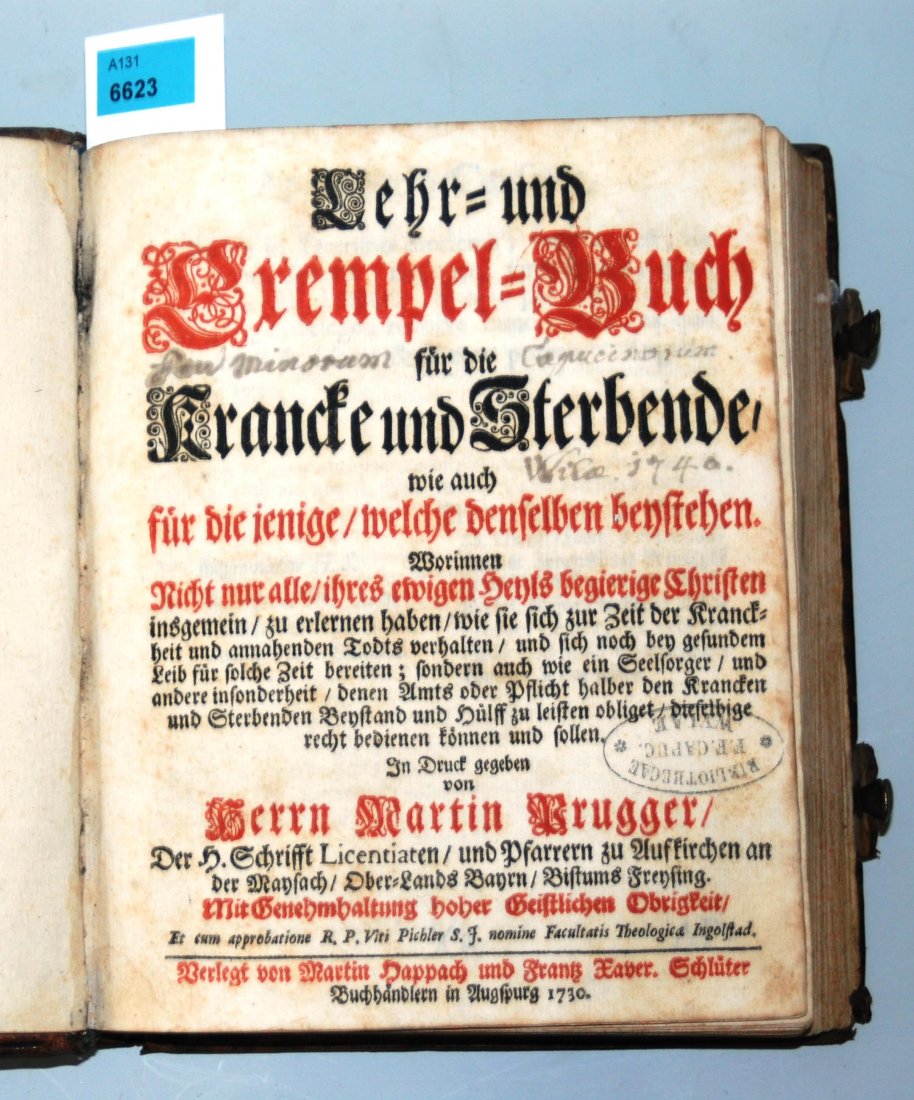 A131
6623
Lehr= und
Exempel=Buch
für die
Minorum Capucinorum
Krancke und Sterbende/
1740.
wie auch
für die jenige/welche denselben beystehen.
Worinnen
Nicht nur alle/ihres ewigen Heyls begierige Christen
insgemein/zu erlernen haben/wie sie sich zur Zeit der Kranck=
heit und annahenden Todts verhalten/und sich noch bey gesundem
Leib für solche Zeit bereiten; sondern auch wie ein Seelsorger/und
andere insonderheit/denen Amts oder Pflicht halber den Krancken
und Sterbenden Beystand und Hülff zu leisten obliget/dieselbige
recht bedienen können und sollen.
BIBLIOTHECAE
F.F. CAPUC.
WYLAE
In Druck gegeben
von
Herrn Martin Prugger/
Der H. Schrifft Licentiaten/und Pfarrern zu Aufkirchen an
der Maysach/Ober=Lands Bayrn/Bistums Freysing.
Mit Genehmhaltung hoher Geistlichen Obrigkeit/
Et cum approbatione R. P. Viti Pichler S. J. nomine Facultatis Theologicæ Ingolstad.
Verlegt von Martin Happach und Frantz Xaver. Schlüter
Buchhändlern in Augspurg 1730.